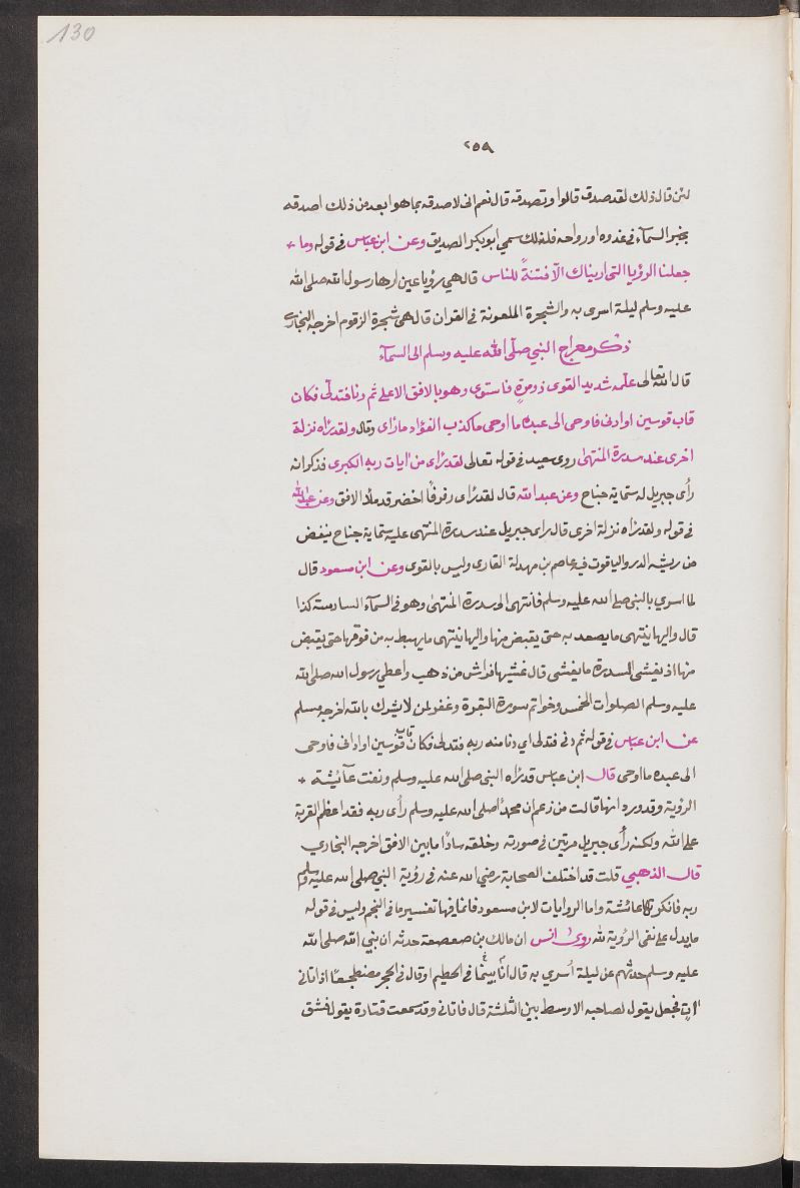 130
٢٥٩
لئن قال ذلك لقد صدق قالوا وتصدقه قال نعم انى لاصدقه بما هو ابعد من ذلك اصدقه
بخبر السمآء فى غدوه اورواحه فلذلك سمي ابو بكر الصديق وعن ابن عباس فى قوله وما
جعلنا الرؤيا التى اريناك الا فتنةً للناس قال هى رؤيا عين اريها رسول الله صلى الله
عليه وسلم ليلة اسرى به والشجرة الملعونة فى القران قال هى شجرة الزقوم اخرجه البخارى
ذكر معراج النبي صلى الله عليه وسلم الى السمآء
قال الله تعالى علّمه شديد القوى ذو مرةٍ فاستوى وهو بالافق الاعلى ثم دنا فتدلّى فكان
قاب قوسين او ادنى فاوحى الى عبده ما اوحى ما كذب الفؤاد ما رأى وقال ولقد رأه نزلة
اخرى عند سدرة المنتهى روى سعيد فى قوله تعالى لقد رأى من أيات ربه الكبرى فذكر انه
رأى جبريل له ستماية جناح وعن عبد الله قال لقد رأى رفرفًا اخضر قد ملأ الافق وعن عبد الله
فى قوله ولقد رأه نزلة اخرى قال راى جبريل عند سدرة المنتهى عليه ستماية جناح ينفض
من ريشه الدر والياقوت فيه عاصم بن مهدلة القارى وليس بالقوى وعن ابن مسعود قال
لما اسري بالنبى صلى الله عليه وسلم فانتهى الى سدرة المنتهى وهو فى السمآء السادسة كذا
قال واليها ينتهى ما يصعد به حتى يقبض منها واليها ينتهى ما يهبط به من فوقها حتى يقبض
منها اذ يغشى السدرة ما يغشى قال غشيها فراش من ذهب واعطي رسول الله صلى الله
عليه وسلم الصلوات الخمس وخواتم سورة البقرة وغفر لمن لا يشرك بالله اخرجه مسلم
عن ابن عباس فى قوله ثم دنى فتدلى اي دنا منه ربه فتدلى فكان قاب قوسين او ادنى فاوحى
الى عبده ما اوحى قال ابن عباس قد رأه النبى صلى الله عليه وسلم ونفت عآئيشة
الرؤية وقد ورد انها قالت من زعم ان محمدًا صلى الله عليه وسلم رأى ربه فقد اعظم الفرية
على الله ولكنه رأى جبريل مرتين فى صورته وخلقه سادًا ما بين الافق اخرجه البخاري
قال الذهبي قلت قد اختلف الصحابة رضي الله عنه فى رؤية النبى صلى الله عليه وسلم
ربه فانكرتها عائشة واما الروايات لابن مسعود فانما فيها تفسير ما فى النجم وليس فى قوله
ما يدل على نفى الرؤية لله روى انس ان مالك بن صعصعة حدثه ان نبي الله صلى الله
عليه وسلم حدثهم عن ليلة أسري به قال انا بينما فى الحطيم او قال فى الحجر مضطجعًا اذ اتانى
أتٍ فجعل يقول لصاحبه الاوسط بين الثلثة قال فاتانى وقد سمعت قتادة يقول فشق